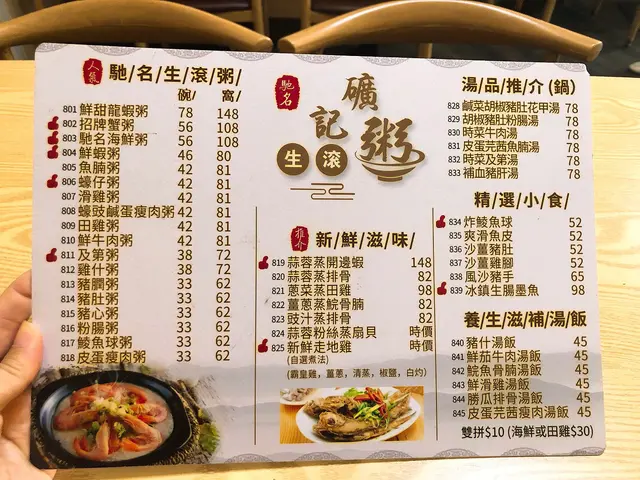 人氣 馳/名/生/滾/粥/
碗/ 窩/
801 鮮甜龍蝦粥 78 148
802 招牌蟹粥 56 108
803 馳名海鮮粥 56 108
804 鮮蝦粥 46 80
805 魚腩粥 42 81
806 蠔仔粥 42 81
807 滑雞粥 42 81
808 蠔豉鹹蛋瘦肉粥 42 81
809 田雞粥 42 81
810 鮮牛肉粥 42 81
811 及第粥 38 72
812 雞什粥 38 72
813 豬膶粥 33 62
814 豬肚粥 33 62
815 豬心粥 33 62
816 粉腸粥 33 62
817 鯪魚球粥 33 62
818 皮蛋瘦肉粥 33 62
馳名
礦記粥
生滾
推介 新/鮮/滋/味/
819 蒜蓉蒸開邊蝦 148
820 蒜蓉蒸排骨 82
821 蔥菜蒸田雞 98
822 薑蔥蒸鯇骨腩 82
823 豉汁蒸排骨 82
824 蒜蓉粉絲蒸扇貝 時價
825 新鮮走地雞 時價
(自選煮法)
(霸皇雞，薑蔥，清蒸，椒鹽，白灼)
湯/品/推/介/(鍋)
828 鹹菜胡椒豬肚花甲湯 78
829 胡椒豬肚粉腸湯 78
830 時菜牛肉湯 78
831 皮蛋芫茜魚腩湯 78
832 時菜及第湯 78
833 補血豬肝湯 78
精/選/小/食/
834 炸鯪魚球 52
835 爽滑魚皮 52
836 沙薑豬肚 52
837 沙薑雞腳 52
838 風沙豬手 65
839 冰鎮生腸墨魚 98
養/生/滋/補/湯/飯
840 豬什湯飯 45
841 鮮茄牛肉湯飯 45
842 鯇魚骨腩湯飯 45
843 鮮滑雞湯飯 45
844 勝瓜排骨湯飯 45
845 皮蛋芫茜瘦肉湯飯 45
雙拼$10 (海鮮或田雞$30)